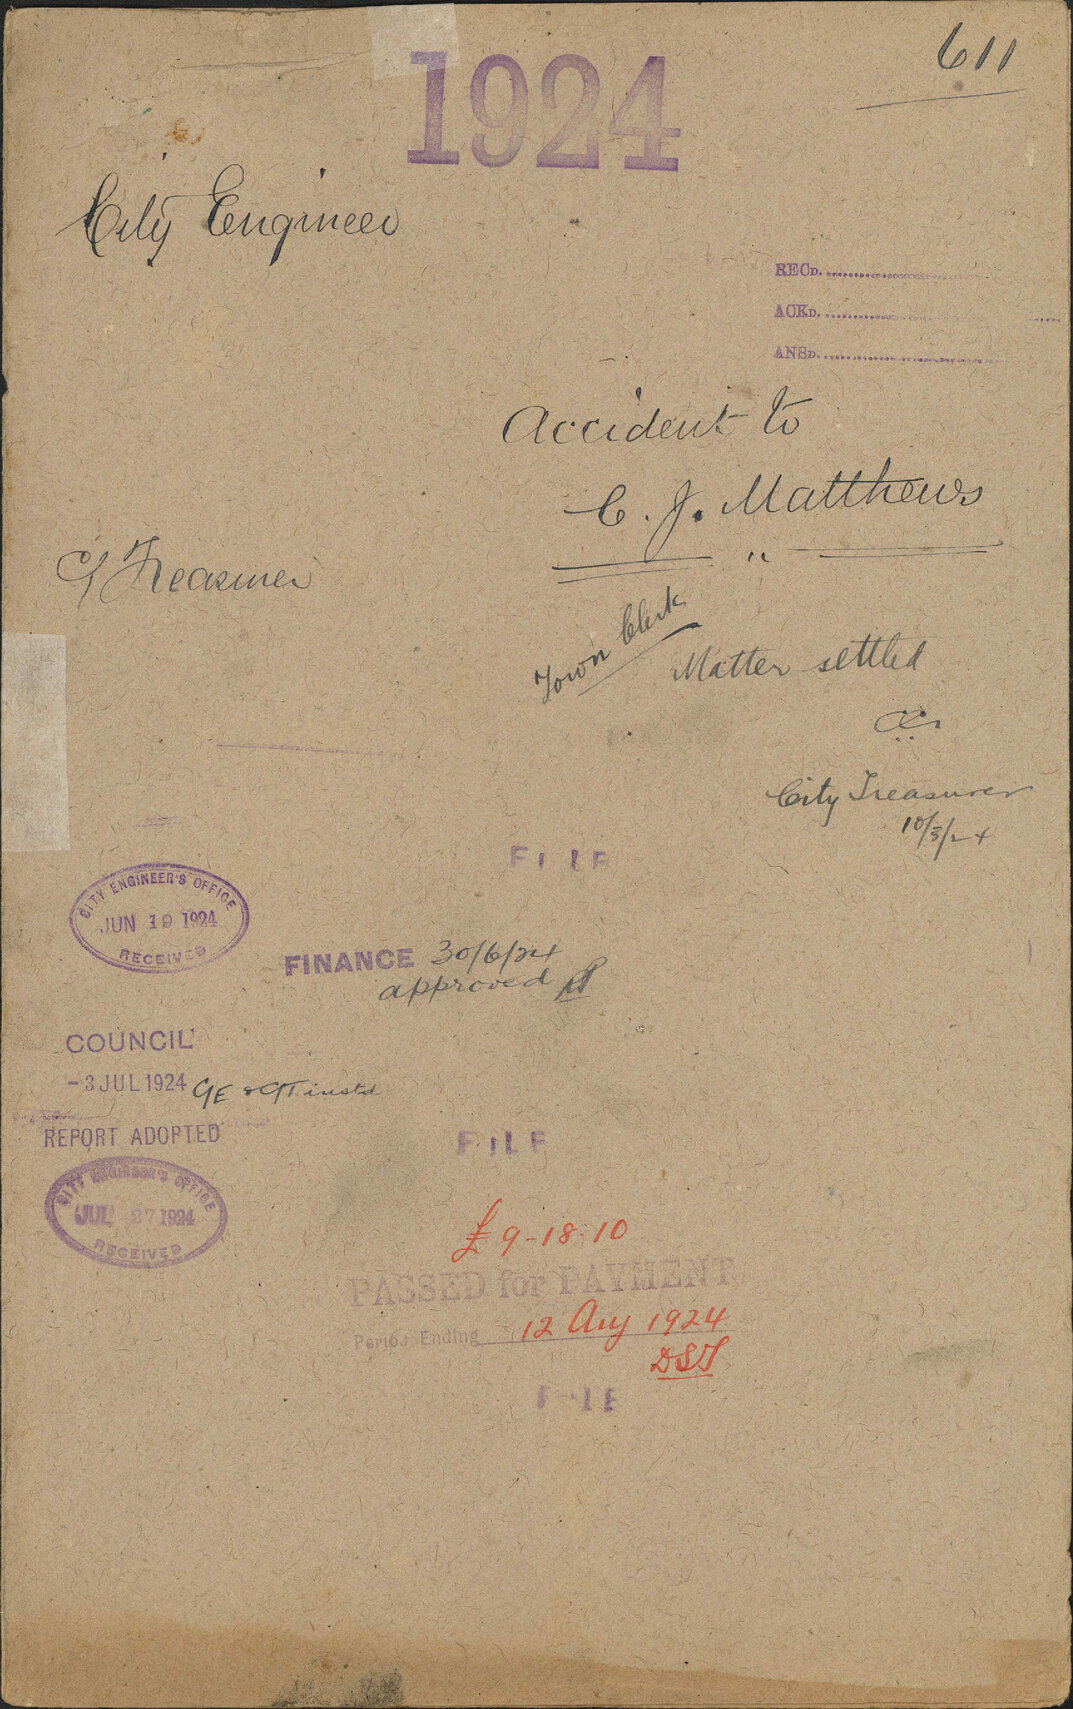 611
1924
City Engineer
RECD.
ACKD.
ANSD.
Accident to
C. J. Matthews
"
C/ Treasurer
Town Clerk
Matter settled
City Treasurer
10/3/24
FILE
CITY ENGINEER'S OFFICE
JUN 19 1924
RECEIVED
FINANCE 30/6/24
approved
COUNCIL
-3 JUL 1924 CE & CT instd
REPORT ADOPTED
FILE
CITY ENGINEER'S OFFICE
JUL 27 1924
RECEIVED
£9-18-10
PASSED for PAYMENT
Period Ending 12 Aug 1924
DST
FILE